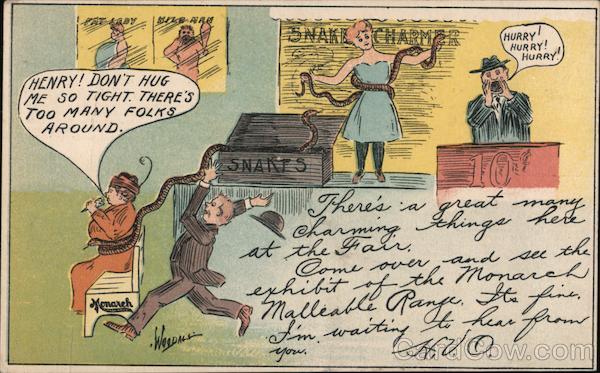 FAT LADY
WILD MAN
SNAKE CHARMER
HURRY!
HURRY!
HURRY!
HENRY! DON'T HUG
ME SO TIGHT. THERE'S
TOO MANY FOLKS
AROUND.
SNAKES
10cts
There's a great many
charming things here
at the Fair.
Come over and see the
exhibit of the Monarch
Malleable Range. Its fine.
I'm waiting to hear from
you.
H.V.O.
Monarch
CardCow.com